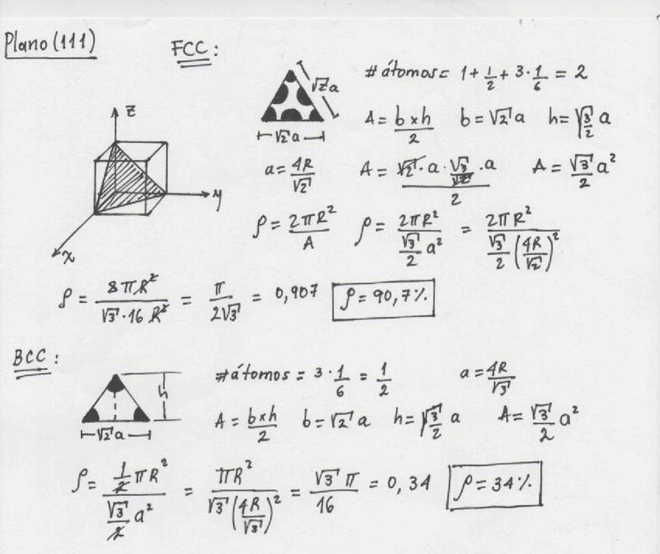 Plano (111)
FCC:
√2 a
√2 a
# átomos = 1 + 1/2 + 3 · 1/6 = 2
A = b×h/2   b = √2 a   h = √(3/2) a
z
y
x
a = 4R/√2   A = (√2 · a · √3/√2 · a)/2   A = √3/2 a²
ρ = 2πR²/A   ρ = 2πR²/(√3/2 a²) = 2πR²/(√3/2 (4R/√2)²)
ρ = 8πR²/(√3 · 16 R²) = π/(2√3) = 0,907   ρ = 90,7%
BCC:
h
√2 a
# átomos = 3 · 1/6 = 1/2   a = 4R/√3
A = b×h/2   b = √2 a   h = √(3/2) a   A = √3/2 a²
ρ = (1/2 πR²)/(√3/2 a²) = πR²/(√3 (4R/√3)²) = √3 π/16 = 0,34   ρ = 34%